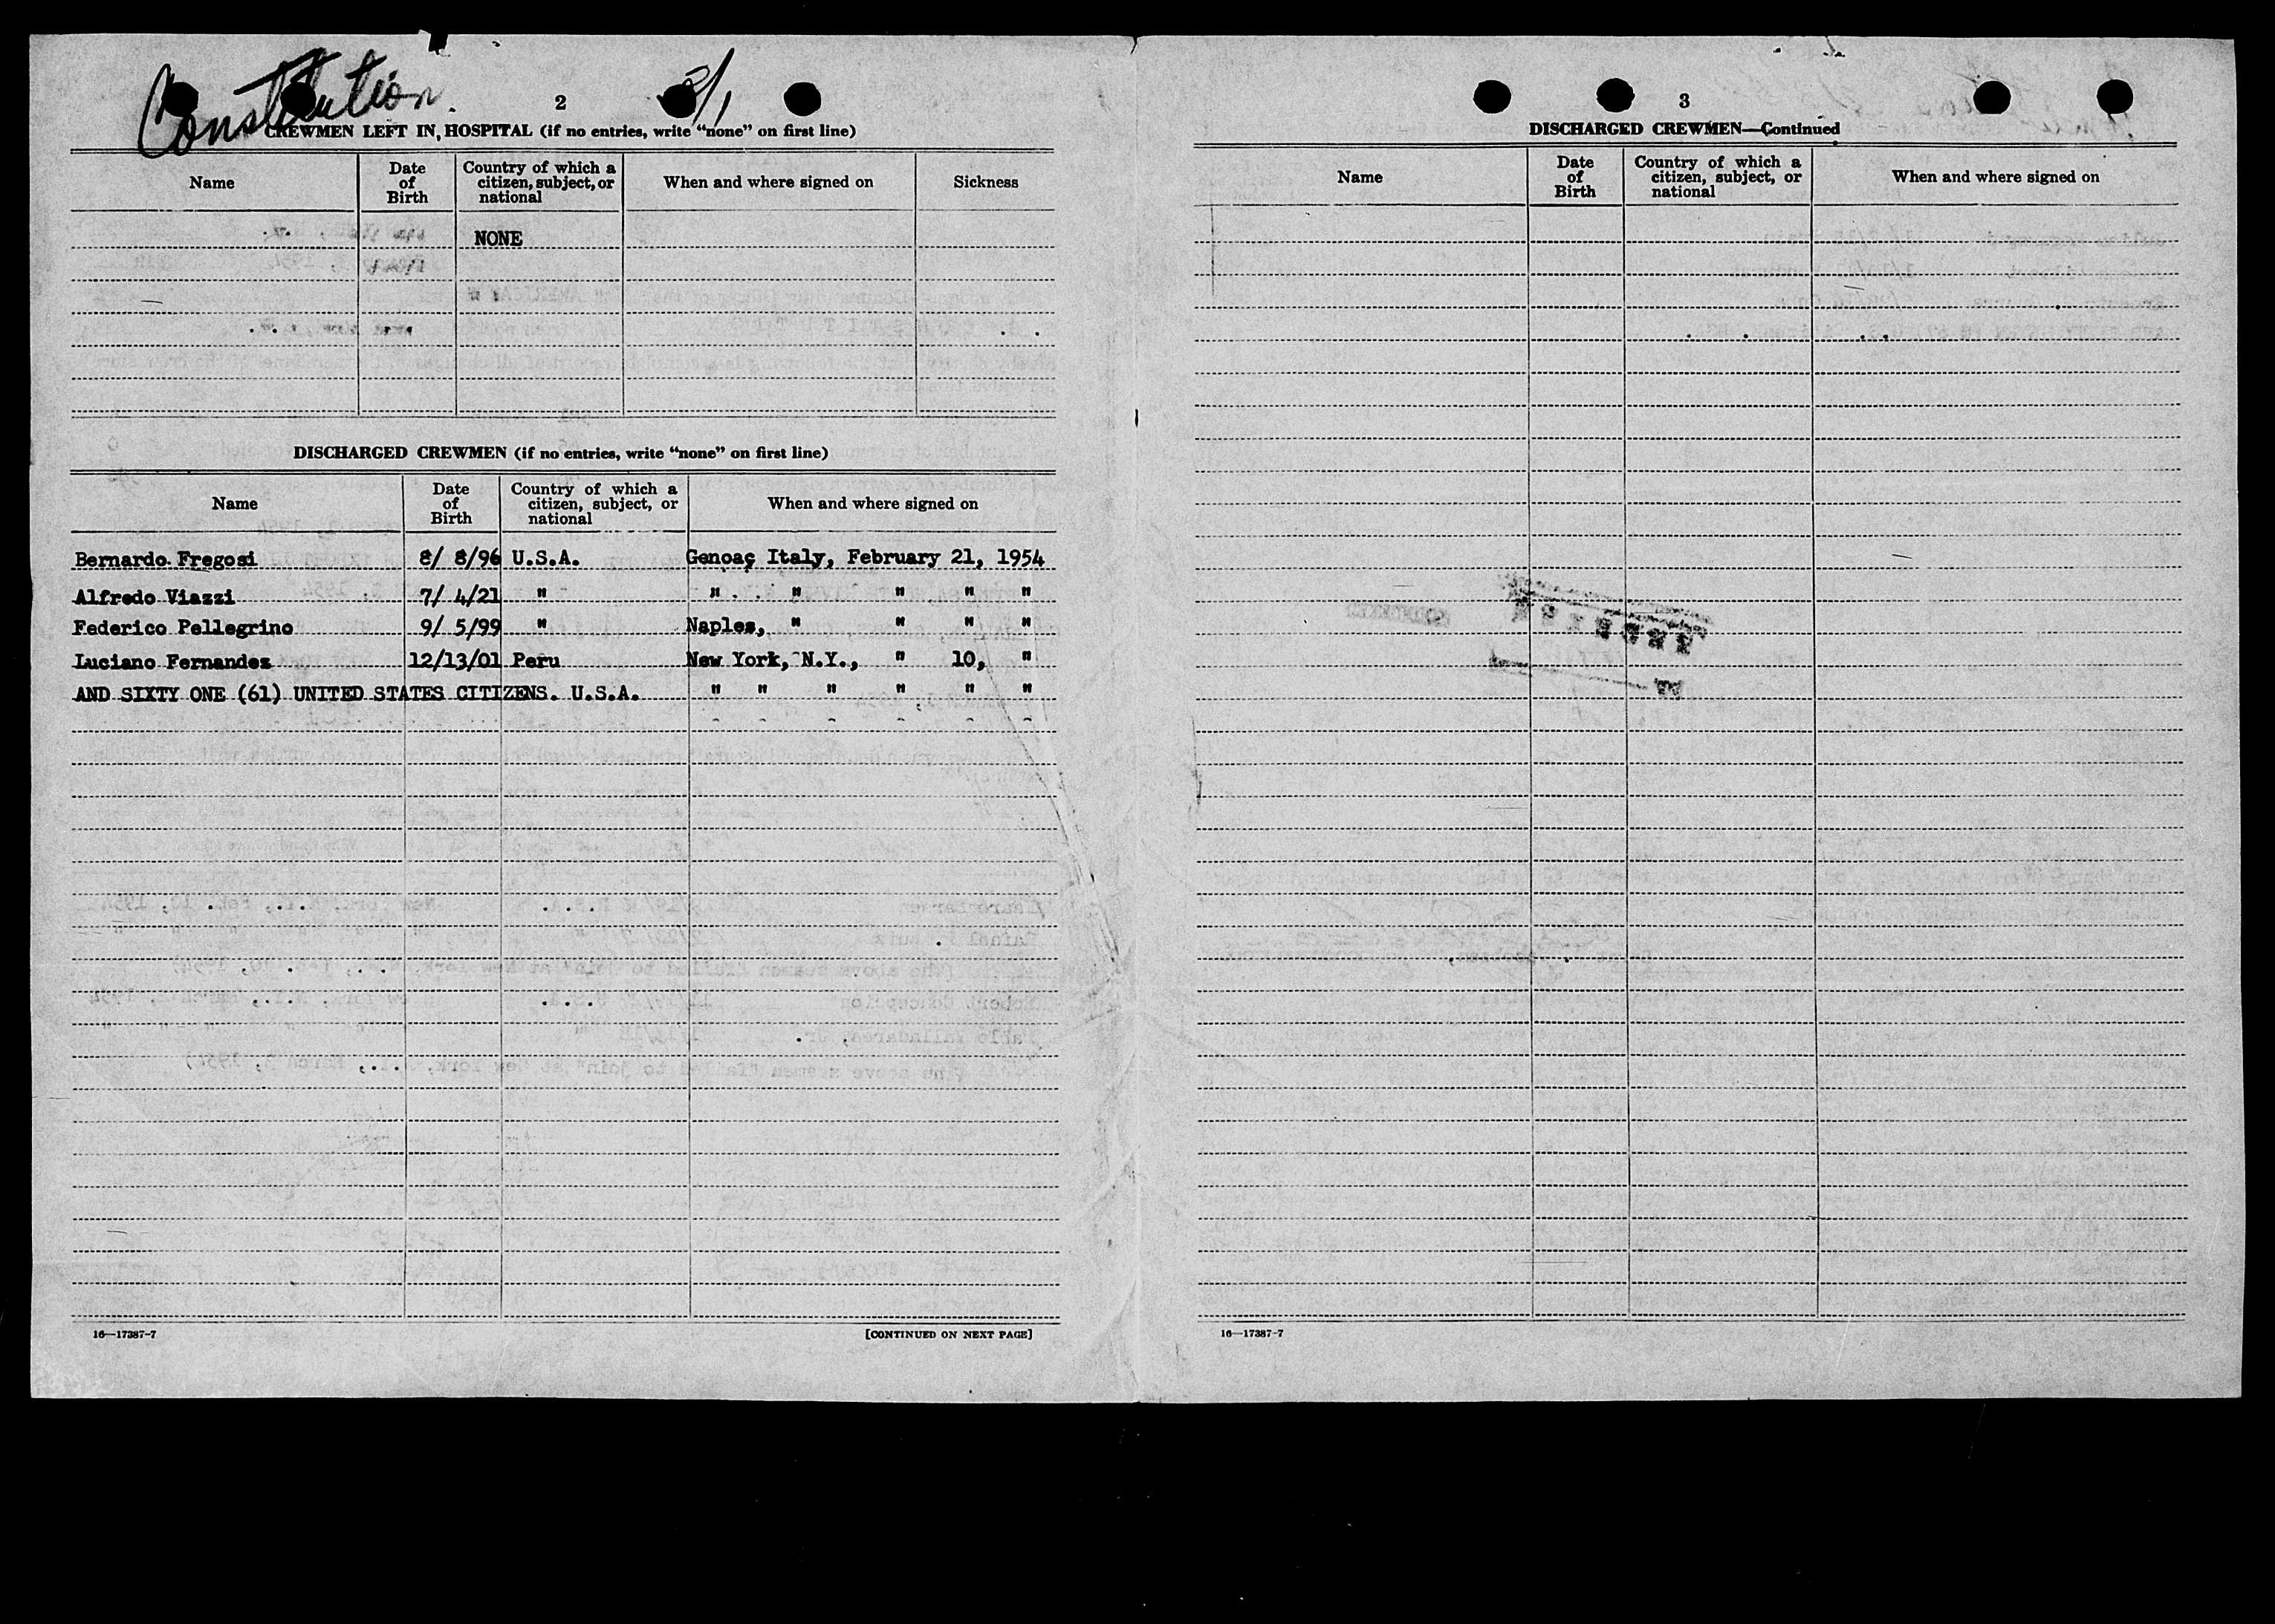 Constitution. 3/1
2
CREWMEN LEFT IN HOSPITAL (if no entries, write "none" on first line)
Name Date of Birth Country of which a citizen, subject, or national When and where signed on Sickness
NONE
DISCHARGED CREWMEN (if no entries, write "none" on first line)
Name Date of Birth Country of which a citizen, subject, or national When and where signed on
Bernardo Fregosi 8/ 8/96 U.S.A. Genoaç Italy, February 21, 1954
Alfredo Viazzi 7/ 4/21 " " " " " "
Federico Pellegrino 9/ 5/99 " Naples, " " " "
Luciano Fernandez 12/13/01 Peru New York, N.Y., " 10, "
AND SIXTY ONE (61) UNITED STATES CITIZENS. U.S.A. " " " " " "
16—17387-7 [CONTINUED ON NEXT PAGE]
3
DISCHARGED CREWMEN—Continued
Name Date of Birth Country of which a citizen, subject, or national When and where signed on
16—17387-7